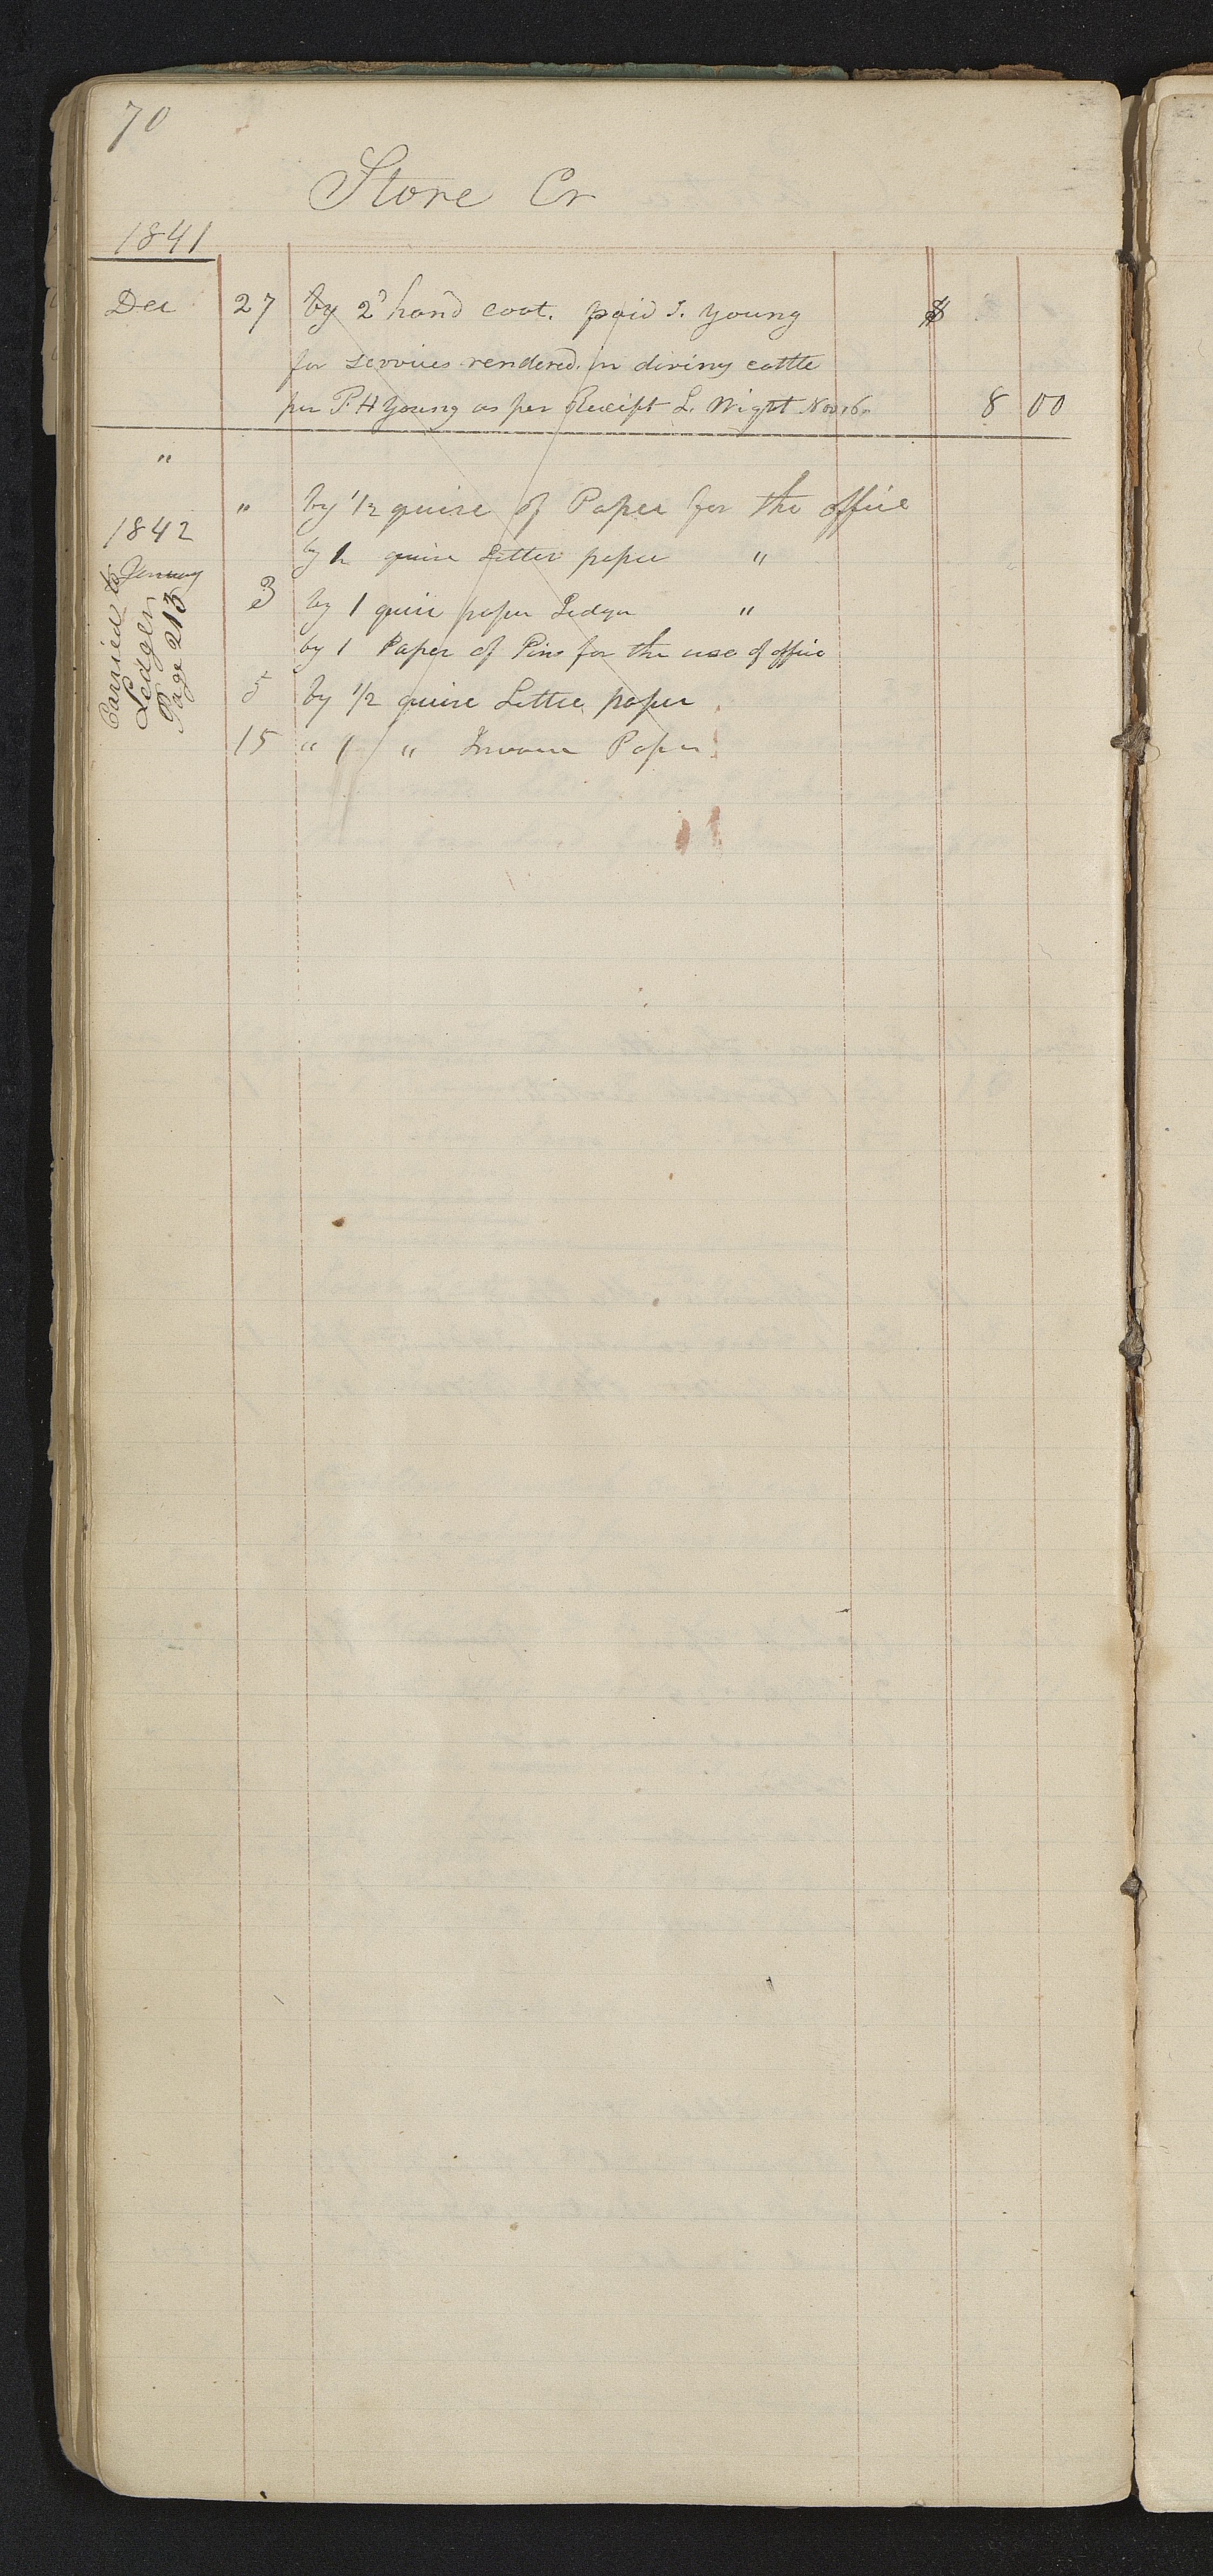 70
Store Cr
1841
Dec 27 by 2d hand coat. paid J. Young $
for services rendered in driving cattle
per P. H Young as per Receipt L. Wight Nov 16. 8 00
"
" by 1/2 quire of Paper for the office
1842
by 1 quire Letter paper "
January
3 by 1 quire paper Ledger "
by 1 Paper of Pins for the use of office
5 by 1/2 quire Letter paper
15 " 1 " Invoice Paper
Carried to
Ledger
Page 213